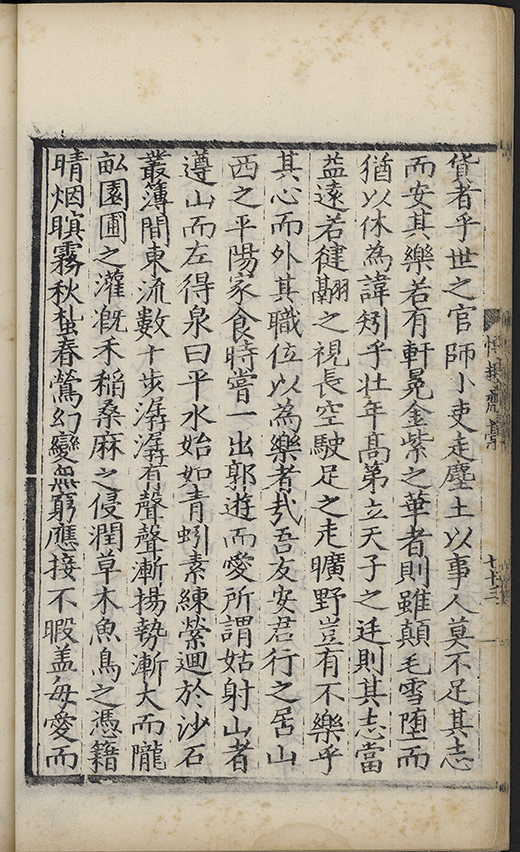 貸者乎世之官師小吏走塵土以事人莫不足其志
而安其樂若有軒冕金紫之華者則雖顛毛雪堕而
猶以休為諱矧乎壮年髙第立天子之廷則其志當
益遠若健翮之視長空駛足之走曠野豈有不樂乎
其心而外其職位以為樂者㢤吾友安君行之居山
西之平陽家食時嘗一出郭遊而愛所謂姑射山者
遵山而左得泉曰平水始如青蚓素練縈廻於沙石
叢薄間東流數十歩潺潺有聲聲漸揚勢漸大而隴
畝園圃之灌溉禾稲桑麻之侵潤草木魚鳥之憑籍
晴烟暝霧秋蛩春鶯幻變無窮應接不暇盖毎愛而
七十三